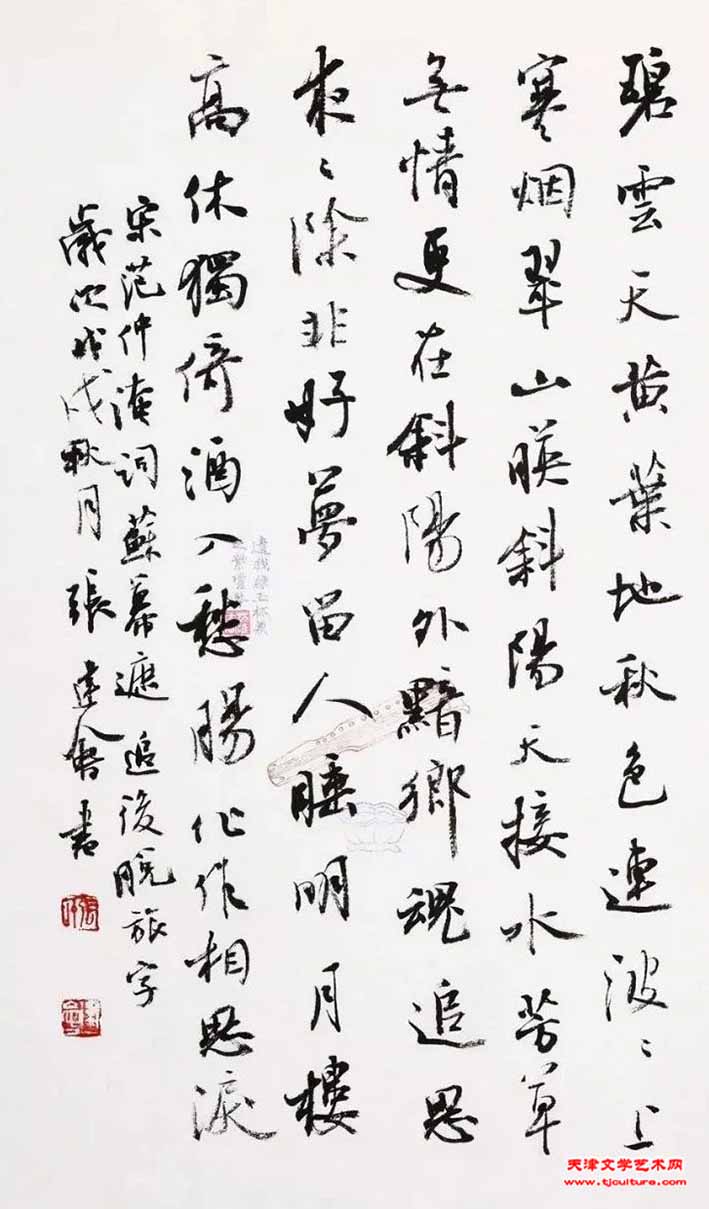 碧雲天黄葉地秋色連波〻上
寒烟翠山暎斜陽天接水芳草
無情更在斜陽外黯鄉魂追思
夜〻除非好夢留人睡明月樓
高休獨倚酒入愁腸化作相思淚
宋范仲淹词蘇幕遮追後脱旅字
歲次戊戌秋月張建會書
天津文学艺术网
www.tjculture.com